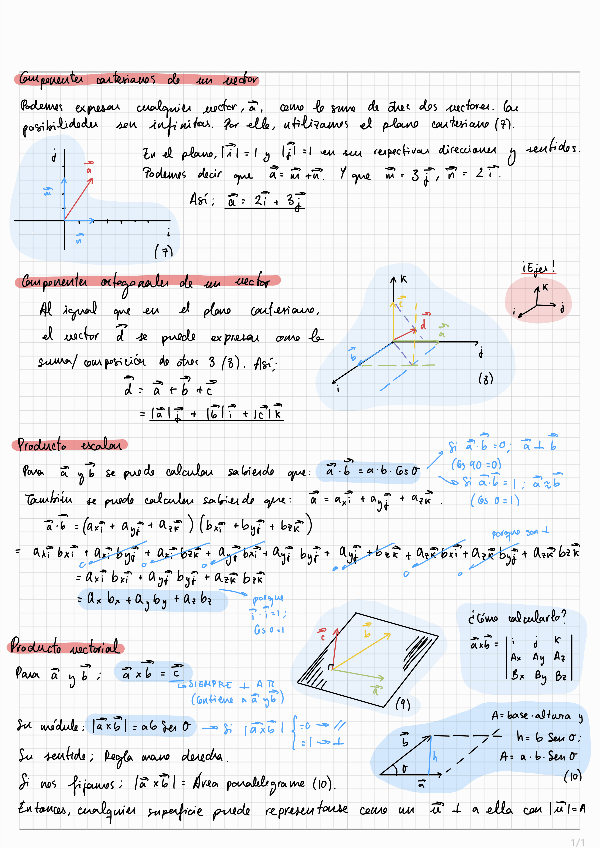 Componentes cartesianas de un vector
Podemos expresar cualquier vector, a⃗, como la suma de otros dos vectores. Las
posibilidades son infinitas. Por ello, utilizamos el plano cartesiano (7).
j
m⃗
a⃗
n⃗
i
(7)
En el plano, |i⃗| = 1 y |j⃗| = 1 en sus respectivas direcciones y sentidos.
Podemos decir que a⃗ = m⃗ + n⃗. Y que m⃗ = 3j⃗, n⃗ = 2i⃗.
Así; a⃗ = 2i⃗ + 3j⃗
Componentes ortogonales de un vector
Al igual que en el plano cartesiano,
el vector d⃗ se puede expresar como la
suma/composición de otros 3 (8). Así;
d⃗ = a⃗ + b⃗ + c⃗
= |a⃗|j⃗ + |b⃗|i⃗ + |c⃗|k⃗
k
c⃗
d⃗
a⃗
b⃗
j
i
(8)
¡Ejes!
k
i
j
Producto escalar
Para a⃗ y b⃗ se puede calcular sabiendo que: a⃗·b⃗ = a·b·Cos σ
Si a⃗·b⃗ = 0; a⃗ ⊥ b⃗
(Cos 90 = 0)
Si a⃗·b⃗ = 1; a⃗ ≈ b⃗
(Cos 0 = 1)
También se puede calcular sabiendo que: a⃗ = axi⃗ + ayj⃗ + azk⃗.
a⃗·b⃗ = (axi⃗ + ayj⃗ + azk⃗) (bxi⃗ + byj⃗ + bzk⃗)
porque son ⊥
= axi⃗ bxi⃗ + axi⃗ byj⃗ + axi⃗ bzk⃗ + ayj⃗ bxi⃗ + ayj⃗ byj⃗ + ayj⃗ + bzk⃗ + azk⃗ bxi⃗ + azk⃗ byj⃗ + azk⃗ bzk⃗
0 0 0 0 0 0
= axi⃗ bxi⃗ + ayj⃗ byj⃗ + azk⃗ bzk⃗
= ax bx + ay by + az bz
porque
i⃗·i⃗ = 1;
Cos 0 = 1
Producto vectorial
Para a⃗ y b⃗; a⃗ x b⃗ = c⃗
SIEMPRE ⊥ A π
(Contiene a a⃗ y b⃗)
c⃗
b⃗
a⃗
(9)
¿Cómo calcularlo?
a⃗xb⃗ = | i j k |
| Ax Ay Az |
| Bx By Bz |
Su módulo: |a⃗xb⃗| = ab Sen σ → Si |a⃗xb⃗| { =0 → //
=1 → ⊥
Su sentido; Regla mano derecha.
Si nos fijamos; |a⃗xb⃗| = Área paralelogramo (10).
b⃗
h
σ
a⃗
A = base·altura y
h = b Sen σ;
A = a·b·Sen σ
(10)
Entonces, cualquier superficie puede representarse como un u⃗ ⊥ a ella con |u⃗| = A
1/1